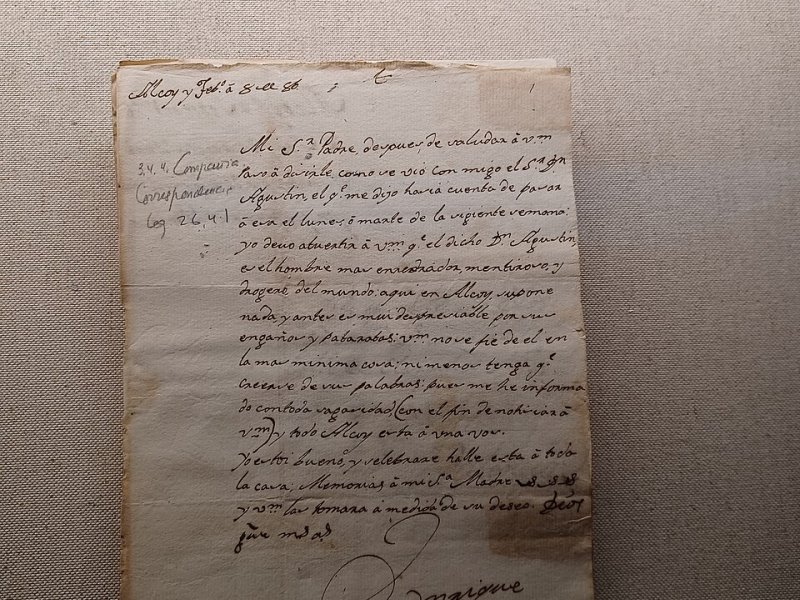 Alcoy y Feb.o á 8 de 86
1
3.4.4. Compañia
Correspondencia
Leg 26, 4.1
Mi S.r Padre, despues de saludar á vm
paso á dicirle, como se vió con migo el S.r Dn
Agustin, el q.e me dijo hasia cuenta de pasar
á esa el lunes, ó marte de la sigiente semana:
yo devo atvertir á vm q.e el dicho Dn Agustin,
es el hombre mas enredrador, mentiroso, y
drogero del mundo: aqui en Alcoy, supone
nada, y antes es mui despresiable por sus
engaños y pataratas: vm no se fie de el en
la mas minima cosa; ni menos tenga q.e
creerse de sus palabras: pues me he informa
do con toda sagasidad (con el fin de notisiar á
vm) y todo Alcoy esta á una vos.
Yo estoi bueno, y selebrare halle esta á toda
la casa; Memorias á mi S.a Madre &. &. &
y vm las tomara á medida de su deseo. Dios
gue ms as